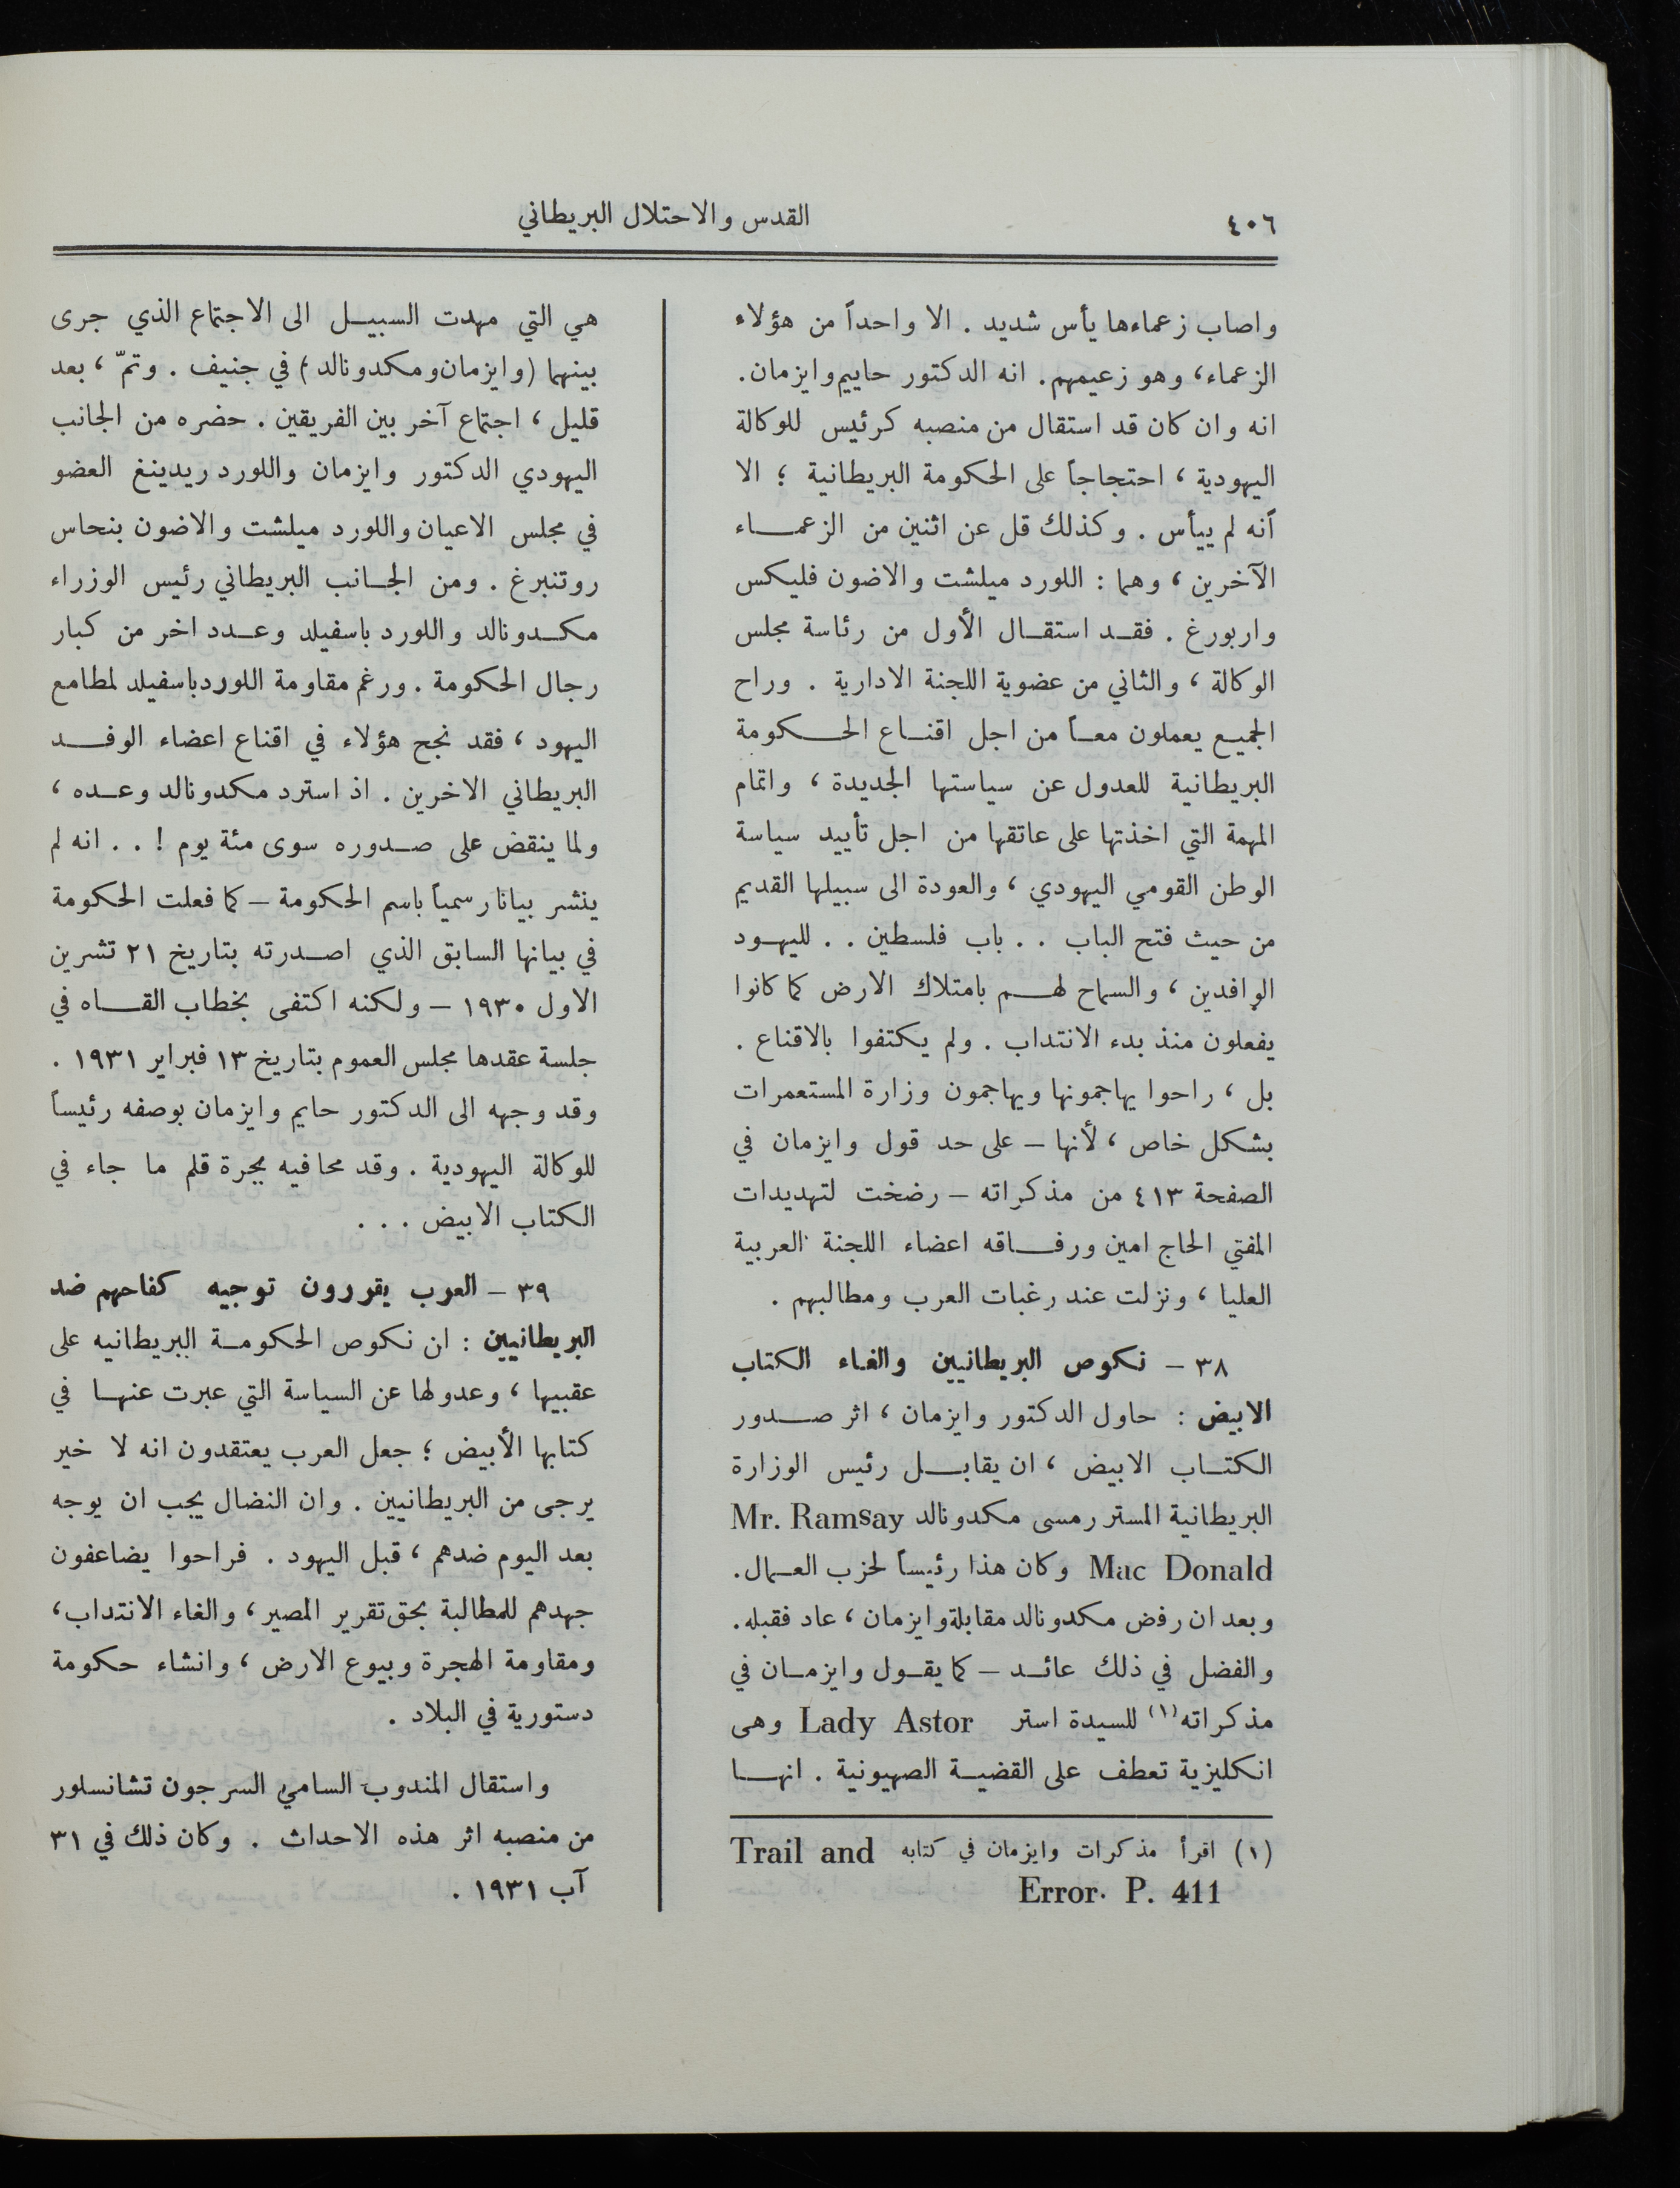 ٤٠٦
القدس والاحتلال البريطاني
واصاب زعماءها يأس شديد . الا واحداً من هؤلاء
الزعماء، وهو زعيمهم. انه الدكتور حاييم وايزمان.
انه وان كان قد استقال من منصبه كرئيس للوكالة
اليهودية ، احتجاجاً على الحكومة البريطانية ؛ الا
أنه لم ييأس . وكذلك قل عن اثنين من الزعماء
الآخرين ، وهما : اللورد ميلشت والاضون فليكس
واربورغ . فقد استقال الأول من رئاسة مجلس
الوكالة ، والثاني من عضوية اللجنة الادارية . وراح
الجميع يعملون معاً من اجل اقناع الحكومة
البريطانية للعدول عن سياستها الجديدة ، واتمام
المهمة التي اخذتها على عاتقها من اجل تأييد سياسة
الوطن القومي اليهودي ، والعودة الى سبيلها القديم
من حيث فتح الباب . . باب فلسطين . . لليهود
الوافدين ، والسماح لهم بامتلاك الارض كما كانوا
يفعلون منذ بدء الانتداب . ولم يكتفوا بالاقناع .
بل ، راحوا يهاجمونها ويهاجمون وزارة المستعمرات
بشكل خاص ، لأنها – على حد قول وايزمان في
الصفحة ٤١٣ من مذكراته – رضخت لتهديدات
المفتي الحاج امين ورفاقه اعضاء اللجنة العربية
العليا ، ونزلت عند رغبات العرب ومطالبهم .
٣٨ – نكوص البريطانيين والغاء الكتاب
الابيض : حاول الدكتور وايزمان ، اثر صدور
الكتاب الابيض ، ان يقابل رئيس الوزارة
البريطانية المستر رمسى مكدونالد Mr. Ramsay
Mac Donald وكان هذا رئيساً لحزب العمال.
وبعد ان رفض مكدونالد مقابلة وايزمان ، عاد فقبله.
والفضل في ذلك عائد – كما يقول وايزمان في
مذكراته(١) للسيدة استر Lady Astor وهى
انكليزية تعطف على القضية الصهيونية . انها
(١) اقرأ مذكرات وايزمان في كتابه Trail and
Error. P. 411
هي التي مهدت السبيل الى الاجتماع الذي جرى
بينهما (وايزمان ومكدونالد) في جنيف . وتمّ ، بعد
قليل ، اجتماع آخر بين الفريقين . حضره من الجانب
اليهودي الدكتور وايزمان واللورد ريدينغ العضو
في مجلس الاعيان واللورد ميلشت والاضون بنحاس
روتنبرغ . ومن الجانب البريطاني رئيس الوزراء
مكدونالد واللورد باسفيلد وعدد اخر من كبار
رجال الحكومة . ورغم مقاومة اللورد باسفيلد لمطامع
اليهود ، فقد نجح هؤلاء في اقناع اعضاء الوفد
البريطاني الاخرين . اذ استرد مكدونالد وعده ،
ولما ينقض على صدوره سوى مئة يوم ! . . انه لم
ينشر بيانا رسمياً باسم الحكومة – كما فعلت الحكومة
في بيانها السابق الذي اصدرته بتاريخ ٢١ تشرين
الاول ١٩٣٠ – ولكنه اكتفى بخطاب القاه في
جلسة عقدها مجلس العموم بتاريخ ١٣ فبراير ١٩٣١ .
وقد وجهه الى الدكتور حايم وايزمان بوصفه رئيساً
للوكالة اليهودية . وقد محا فيه بجرة قلم ما جاء في
الكتاب الابيض . . .
٣٩ – العرب يقررون توجيه كفاحهم ضد
البريطانيين : ان نكوص الحكومة البريطانيه على
عقبيها ، وعدولها عن السياسة التي عبرت عنها في
كتابها الأبيض ؛ جعل العرب يعتقدون انه لا خير
يرجى من البريطانيين . وان النضال يجب ان يوجه
بعد اليوم ضدهم ، قبل اليهود . فراحوا يضاعفون
جهدهم للمطالبة بحق تقرير المصير ، والغاء الانتداب،
ومقاومة الهجرة وبيوع الارض ، وانشاء حكومة
دستورية في البلاد .
واستقال المندوب السامي السر جون تشانسلور
من منصبه اثر هذه الاحداث . وكان ذلك في ٣١
آب ١٩٣١ .